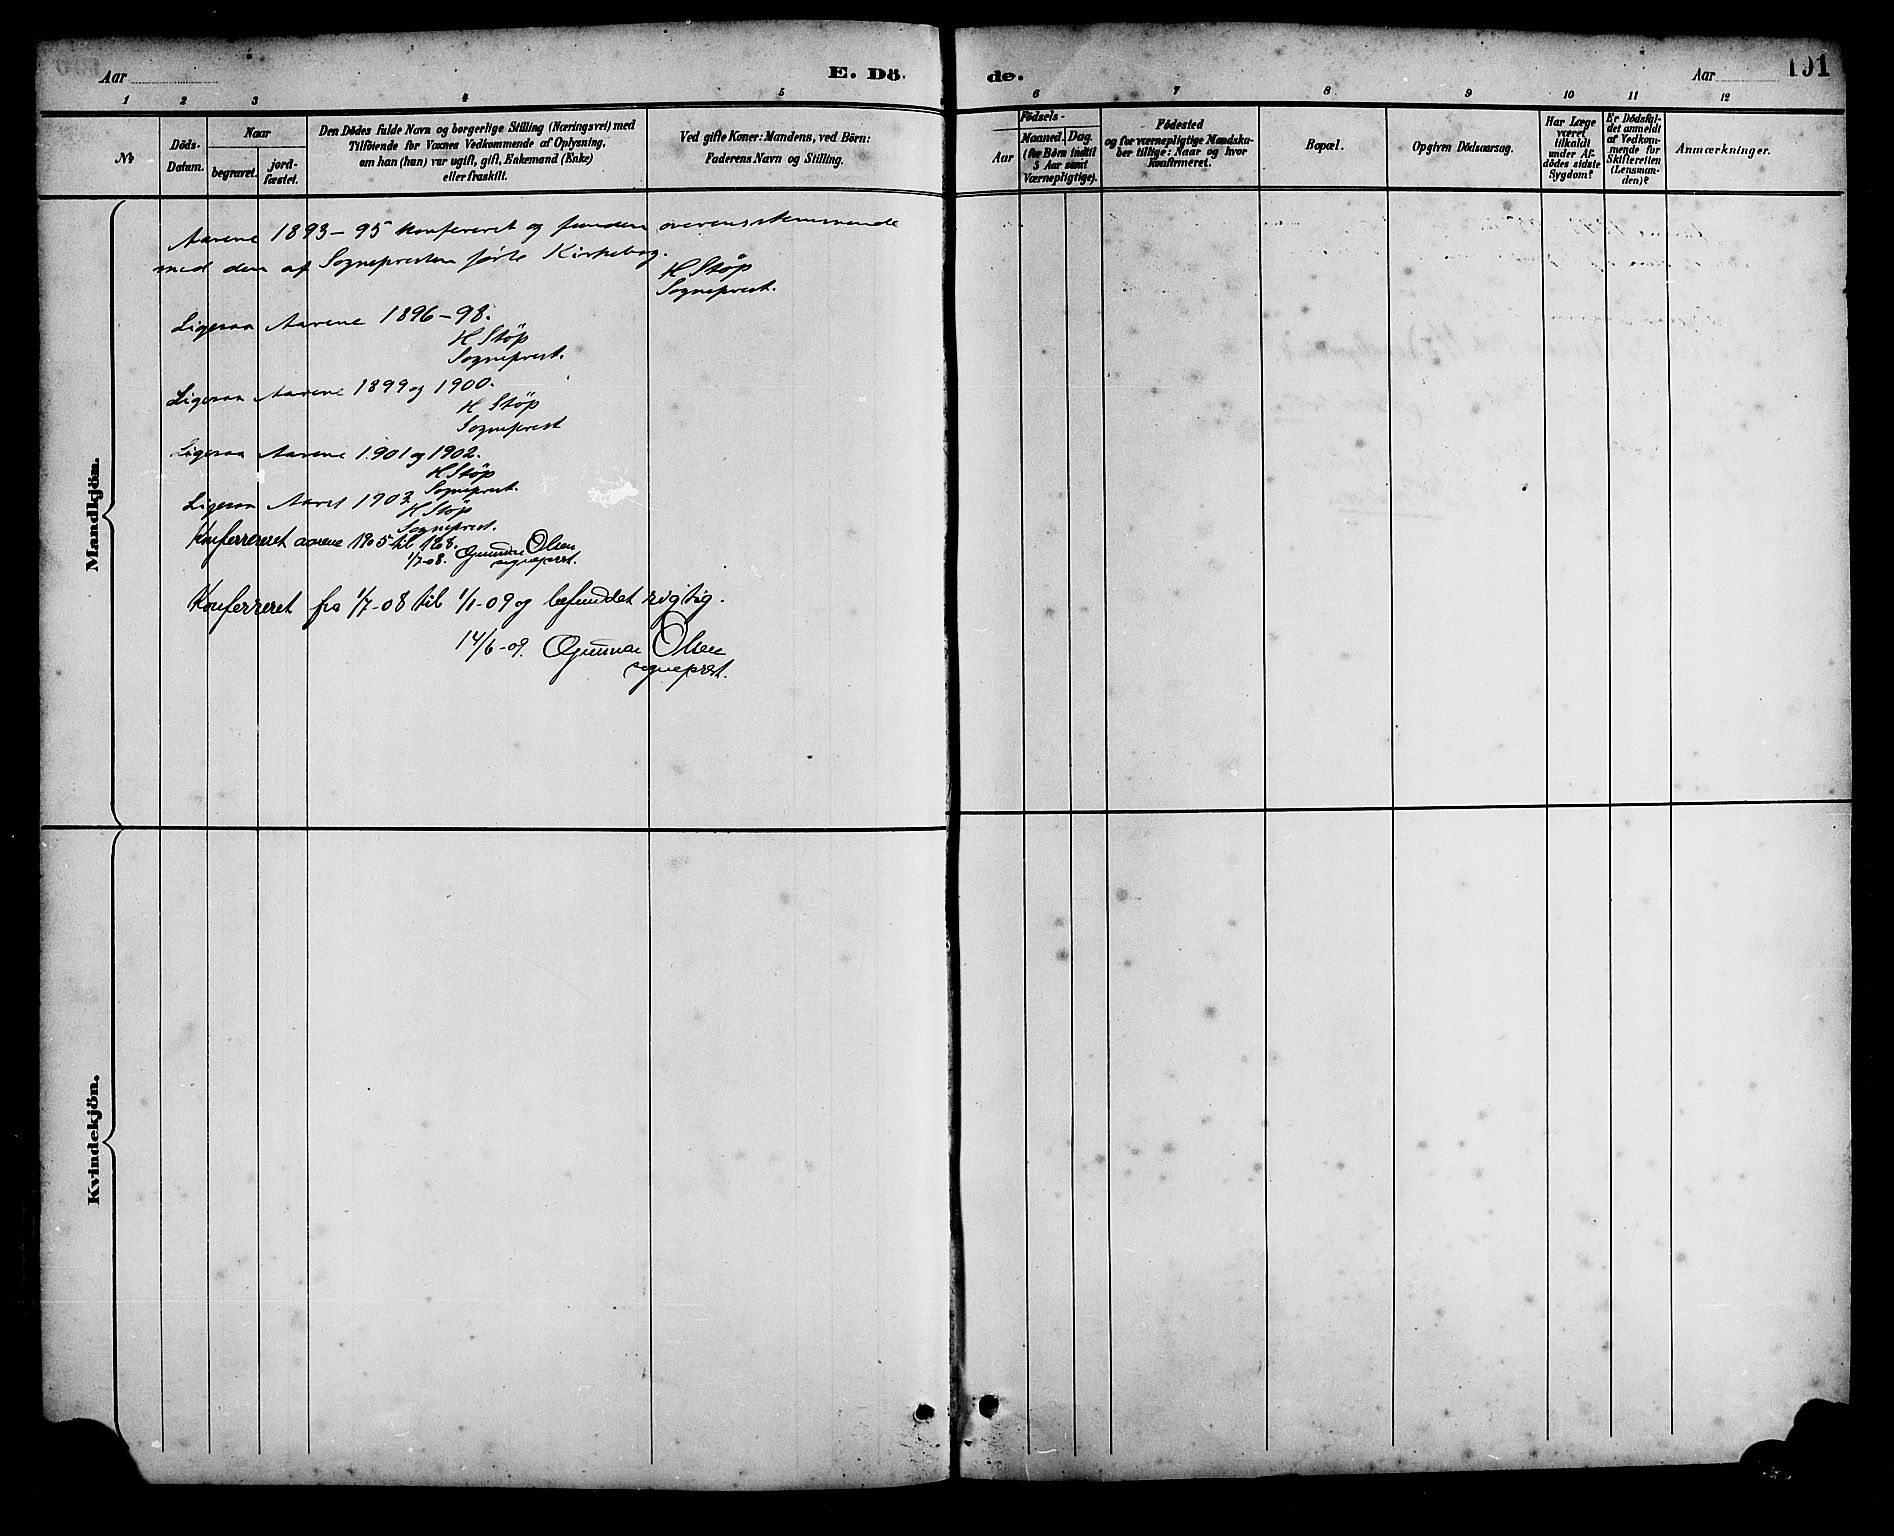 Aar
E. Dö-
de.
Aar
191
1
2
3
4
5
6
7
8
9
10
11
12
№
Döds-
Datum.
Naar
begravet.
jord-
fæstet.
Den Dödes fulde Navn og borgerlige Stilling (Næringsvei) med
Tilföiende for Voxnes Vedkommende af Oplysning,
om han (hun) var ugift, gift, Enkemand (Enke)
eller fraskilt.
Ved gifte Koner: Mandens, ved Börn:
Faderens Navn og Stilling.
Födsels-
Aar
Maaned.
Dag.
(for Börn indtil
5 Aar samt
Værnepligtige).
Födested
og for værnepligtige Mandska-
ber tillige: Naar og hvor
Konfirmeret.
Bopæl.
Opgiven Dödsaarsag.
Har Læge
været
tilkaldt
under Af-
dödes sidste
Sygdom?
Er Dödsfal-
det anmeldt
af Vedkom-
mende for
Skifteretten
(Lensman-
den)?
Anmærkninger.
Mandkjön.
Aarene 1893-95 konfereret og funden overensstemmende
med den af Sognepresten førte Kirkebog.
H Støp
Sogneprest.
Ligesaa Aarene 1896-98.
H Støp
Sogneprest.
Ligesaa Aarene 1899 og 1900.
H Støp
Sogneprest
Ligesaa Aarene 1901 og 1902.
H. Støp
Sogneprest.
Ligesaa Aaret 1903.
H Støp
Sogneprest.
Konferreret aarene 1905 til 1/6 8.
1/7-08. Gunnar Olsen
sogneprest.
Konferreret fra 1/7-08 til 1/1-09 og befundet rigtig.
14/6-09. Gunnar Olsen
sogneprest.
Kvindekjön.